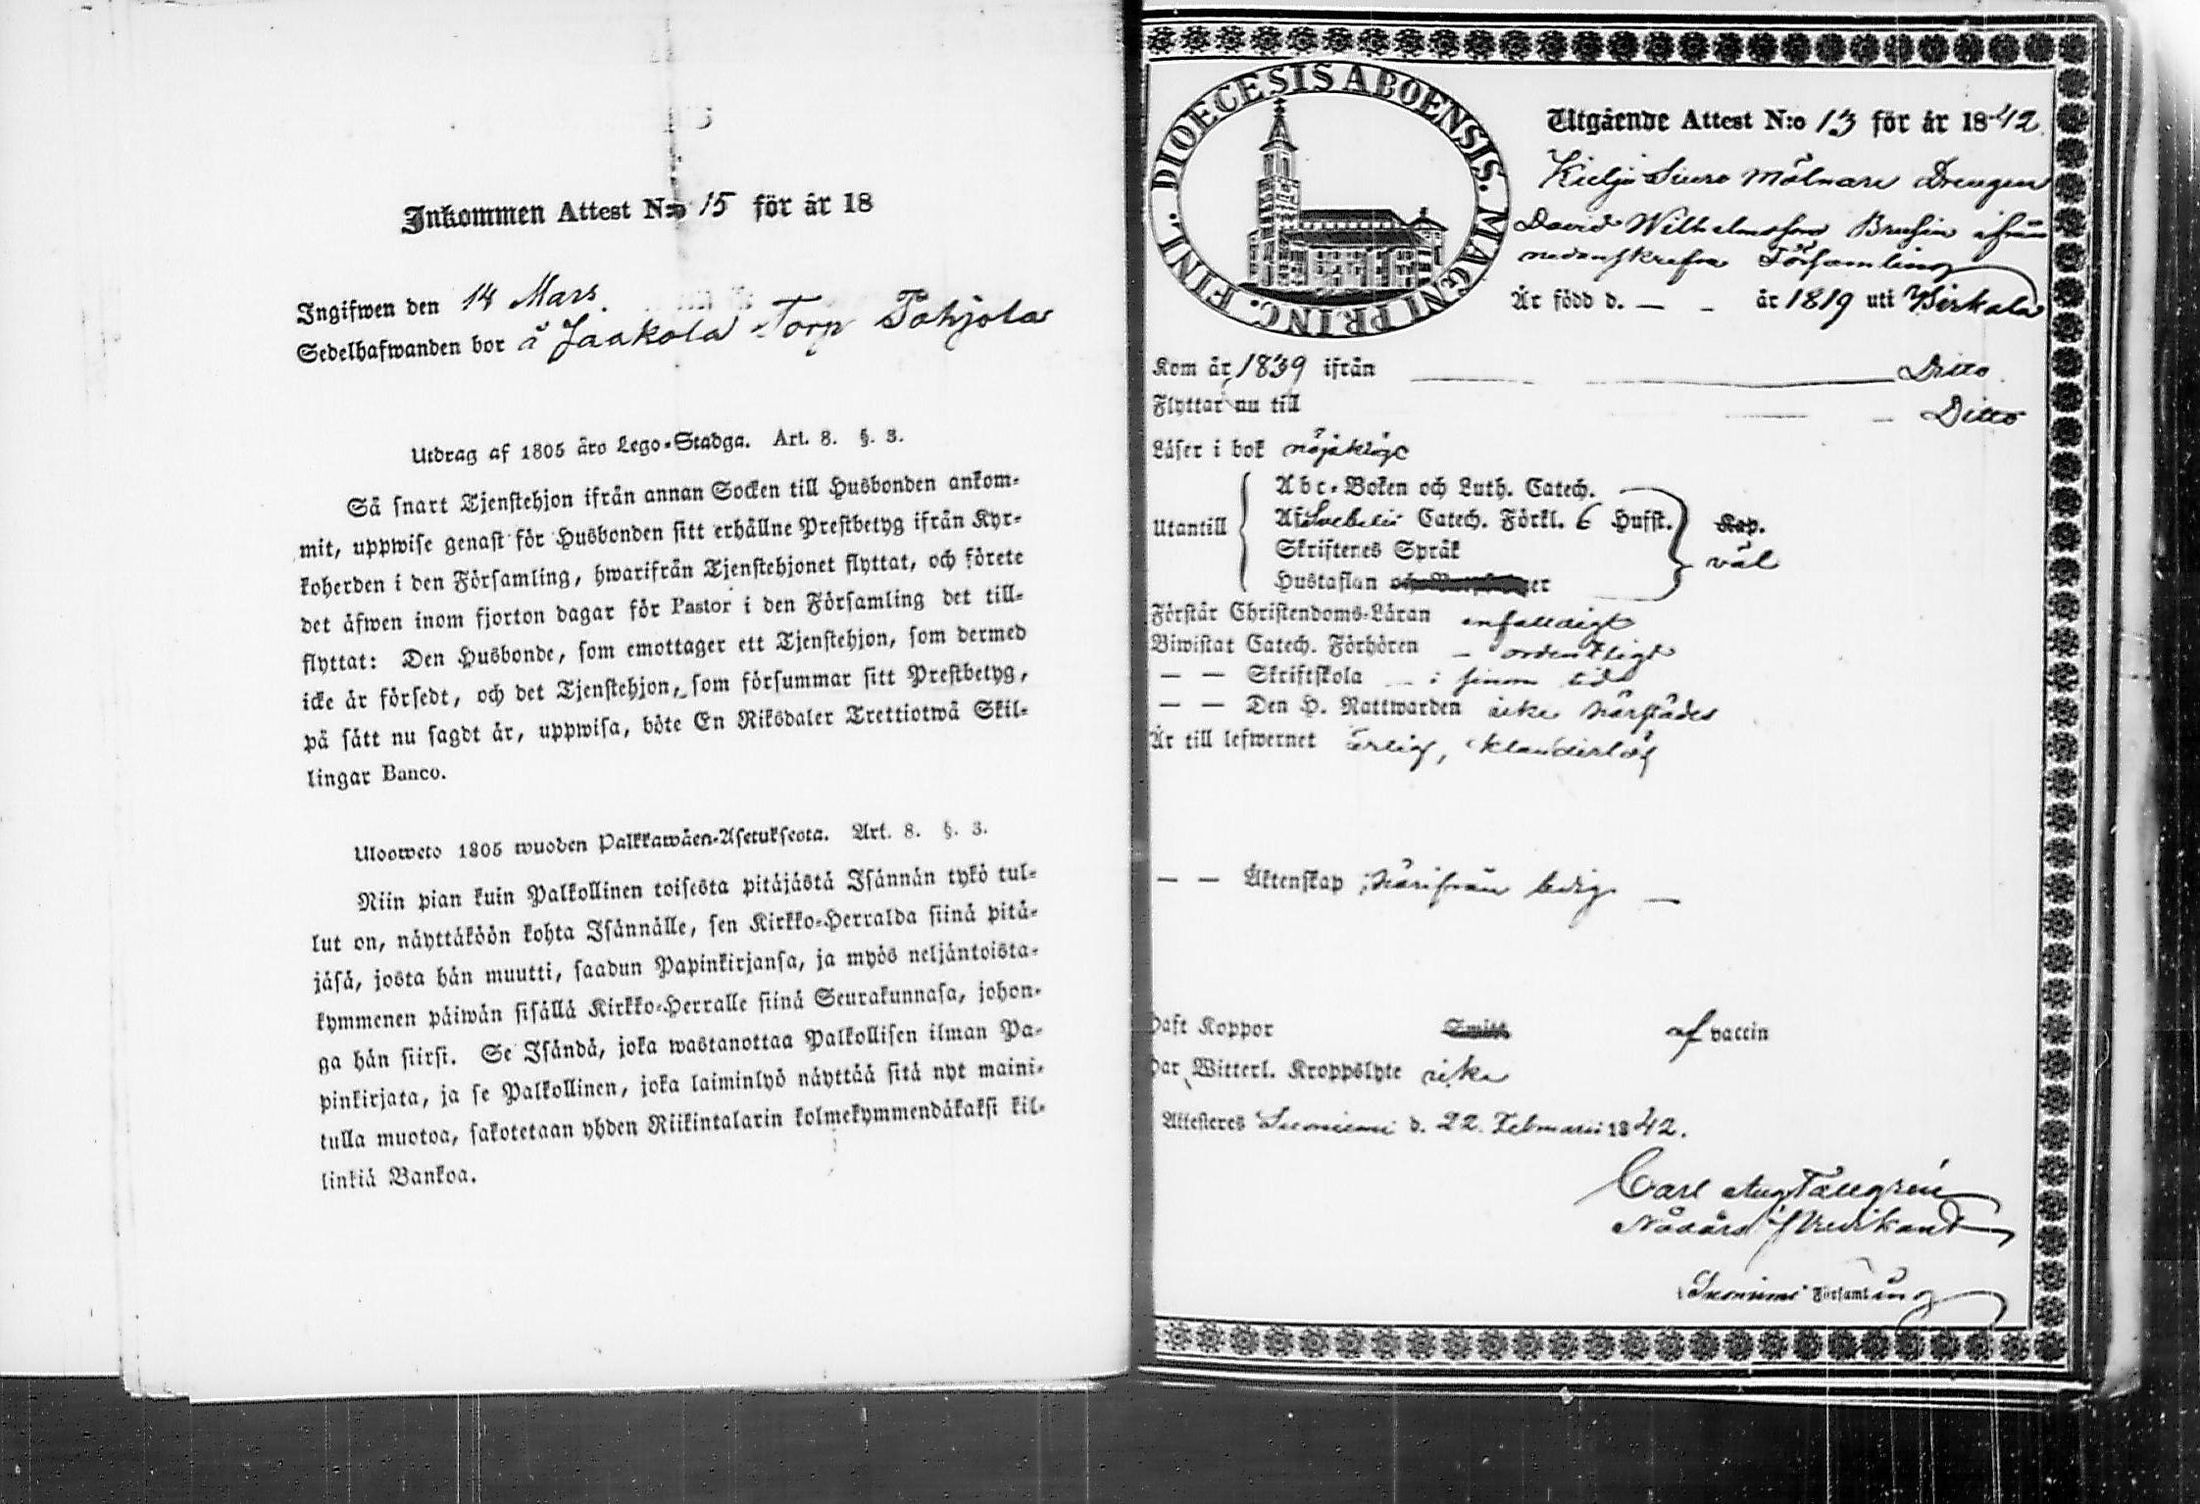 Inkommen Attest N:o 15 för år 18
Ingifwen den 14 Mars.
Sedelhafwanden bor å Jaakola Torp Pohjola
Utdrag af 1805 åro Lego-Stadga. Art. 8. §. 3.
Så snart Tjenstehjon ifrån annan Socken till Husbonden ankom-
mit, uppwise genast för Husbonden sitt erhållne Prestbetyg ifrån Kyr-
koherden i den Församling, hwarifrån Tjenstehjonet flyttat, och förete
det äfwen inom fjorton dagar för Pastor i den Församling det till-
flyttat: Den Husbonde, som emottager ett Tjenstehjon, som dermed
icke är försedt, och det Tjenstehjon, som försummar sitt Prestbetyg,
på sätt nu sagdt är, uppwisa, böte En Riksdaler Trettiotwå Skil-
lingar Banco.
Ulosweto 1805 wuoden Palkkawäen-Asetuksesta. Art. 8. §. 3.
Niin pian kuin Palkollinen toisesta pitäjästä Isännän tykö tul-
lut on, näyttäköön kohta Isännälle, sen Kirkko-Herralda siinä pitä-
jäsä, josta hän muutti, saadun Papinkirjansa, ja myös neljäntoista-
kymmenen päiwän sisällä Kirkko-Herralle siinä Seurakunnasa, johon-
ga hän siirsi. Se Isändä, joka wastanottaa Palkollisen ilman Pa-
pinkirjata, ja se Palkollinen, joka laiminlyö näyttää sitä nyt maini-
tulla muotoa, sakotetaan yhden Riikintalarin kolmekymmendäkaksi kil-
linkiä Bankoa.
DIOECESIS ABOENSIS. MAGNI PRINC. FINL.
Utgående Attest N:o 13 för år 1842
Kieljo Siuro Mölnare Drengen
David Wilhelmsson Brusin ifrån
nedanskrefne Församling
Är född d. — - år 1819 uti Birkala
Kom år 1839 ifrån Ditto
Flyttar nu till Ditto
Läser i bok nöjaktigt
Utantill
Abc-Boken och Luth. Catech.
Af Svebelii Catech. Förkl. 6 Hufst. Kap.
Skriftenes Språk väl
Hustaflan
Förstår Christendoms-Läran enfaldigt
Biwistat Catech. Förhören – ordentligt
— — Skriftskola i sinom tid
— — Den H. Nattwarden icke härstädes
Är till lefwernet ärlig, klanderlös
— — Äktenskap härifrån ledig —
Haft Koppor af vaccin
Har Witterl. Kroppslyte icke
Attesteres Suoniemi d. 22 Februarii 1842.
Carl Aug Tallgrén
Nådårs Predikant
i Suoniemi Församling